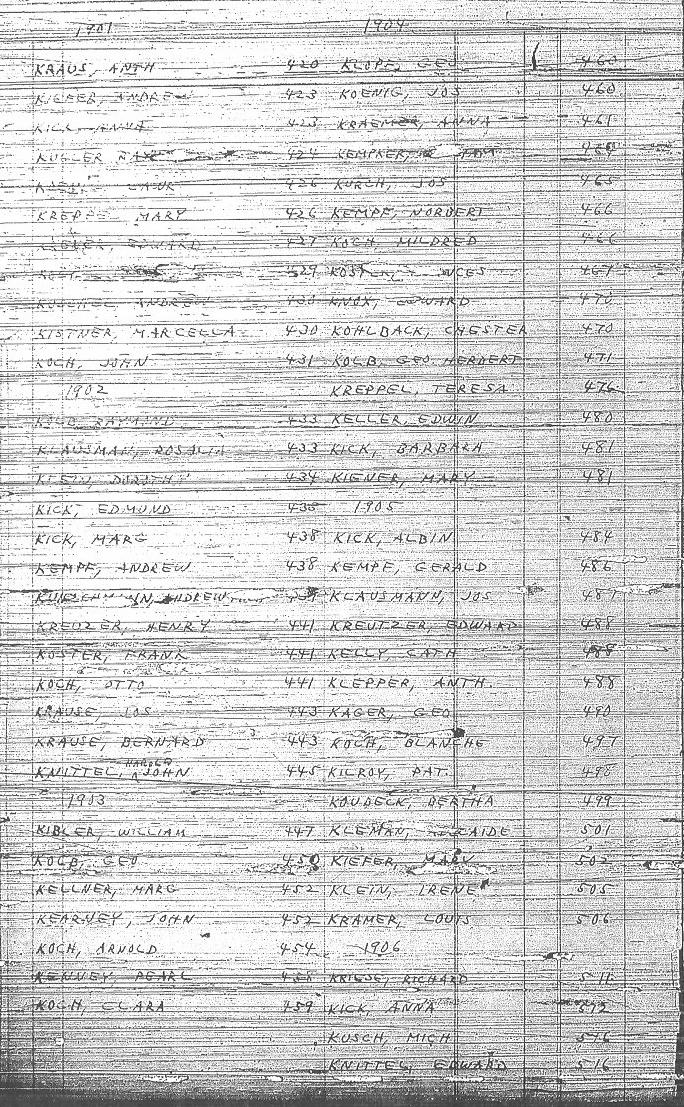 1901
KRAUS, ANTH 420
KIEFER, ANDREW 423
KICK, ANNA 423
KUGLER 424
426
KREPPE MARY 426
EDWARD 427
429
ANDREW 430
KISTNER, MARCELLA 430
KOCH, JOHN 431
1902
KOLB RAYMOND 433
KLAUSMAN, ROSALIA 433
KLEIN, DOROTHY 434
KICK, EDMUND 438
KICK, MARG 438
KEMPF, ANDREW 438
ANDREW
KREUZER, HENRY 441
KOSTER, FRANK 441
KOCH, OTTO 441
KRAUSE, JOS 443
KRAUSE, BERNARD 443
KNITTEL, HAROLD JOHN 445
1903
KIBLER, WILLIAM 447
KOLB, GEO 450
KELLNER, MARG 452
KEARNEY, JOHN 452
KOCH, ARNOLD 454
KENNEY, PEARL 458
KOCH, CLARA 459
1904
KLOPF, GEO 460
KOENIG, JOS 460
KRAEMER, ANNA 461
KEMPKER, 464
KURCH, JOS 465
KEMPF, NORBERT 466
KOCH, MILDRED 466
467
KNOX, EDWARD 470
KOHLBACK, CHESTER 470
KOLB, GEO HERBERT 471
KREPPEL, TERESA 476
KELLER, EDWIN 480
KICK, BARBARA 481
KIENER, MARY 481
1905
KICK, ALBIN 484
KEMPF, GERALD 486
KLAUSMANN, JOS 487
KREUTZER, EDWARD 488
KELLY, CATH 488
KLEPPER, ANTH. 488
KAGER, GEO 490
KOCH, BLANCHE 497
KILROY, PAT. 498
KOUDECK, BERTHA 499
KLEMAN, 501
KIEFER, MARY 502
KLEIN, IRENE 505
KRAMER, LOUIS 506
1906
KRIESE, RICHARD 511
KICK, ANNA 512
KUSCH, MICH 516
KNITTEL, EDWARD 516